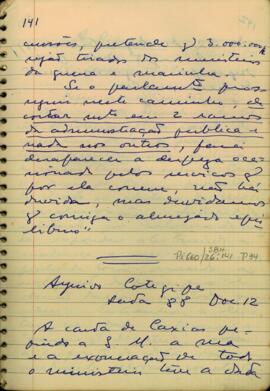 141
cursões, pretende q 3.000.000$
sejão tirados dos ministerios
da guerra e marinha.
Se o parlamento pros-
seguir neste caminho, de
cortar em 2 ramos
da administração publica e
nada nos outros, fará
desapparecer a despeza occa-
sionada pelos serviços q
por ella correm, não há
duvida, mas duvidamos
q consiga o almejado equi-
librio"
Arquivo Cotegipe
Pasta 88 Doc. 12
A carta de Caxias pe-
dindo a S. M. a sua
e a exoneração de todo
o ministerio tem a data